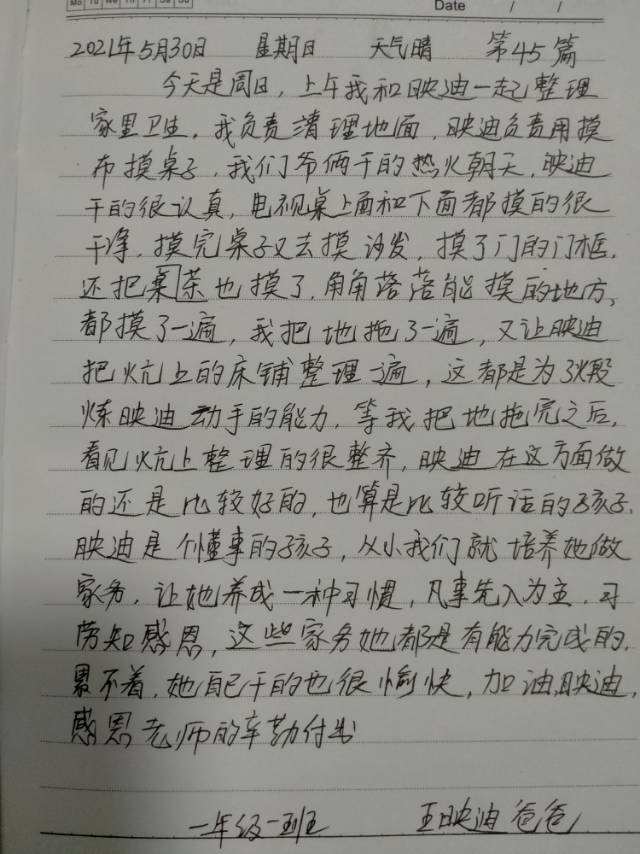 Mo Tu We Th Fr Sa Su
Date / /
2021年5月30日 星期日 天气晴 第45篇
今天是周日，上午我和映迪一起整理
家里卫生，我负责清理地面，映迪负责用摸
布摸桌子，我们爷俩干的热火朝天，映迪
干的很认真，电视桌上面和下面都摸的很
干净，摸完桌子又去摸沙发，摸了门的门框，
还把桌茶也摸了，角角落落能摸的地方，
都摸了一遍，我把地拖了一遍，又让映迪
把炕上的床铺整理一遍，这都是为了煅
炼映迪动手的能力，等我把地拖完之后，
看见炕上整理的很整齐，映迪在这方面做
的还是比较好的，也算是比较听话的孩子，
映迪是个懂事的孩子，从小我们就培养她做
家务，让她养成一种习惯，凡事先入为主，习
劳知感恩，这些家务她都是有能力完成的，
累不着，她自己干的也很愉快，加油映迪，
感恩老师的辛勤付出
一年级一班 王映迪爸爸